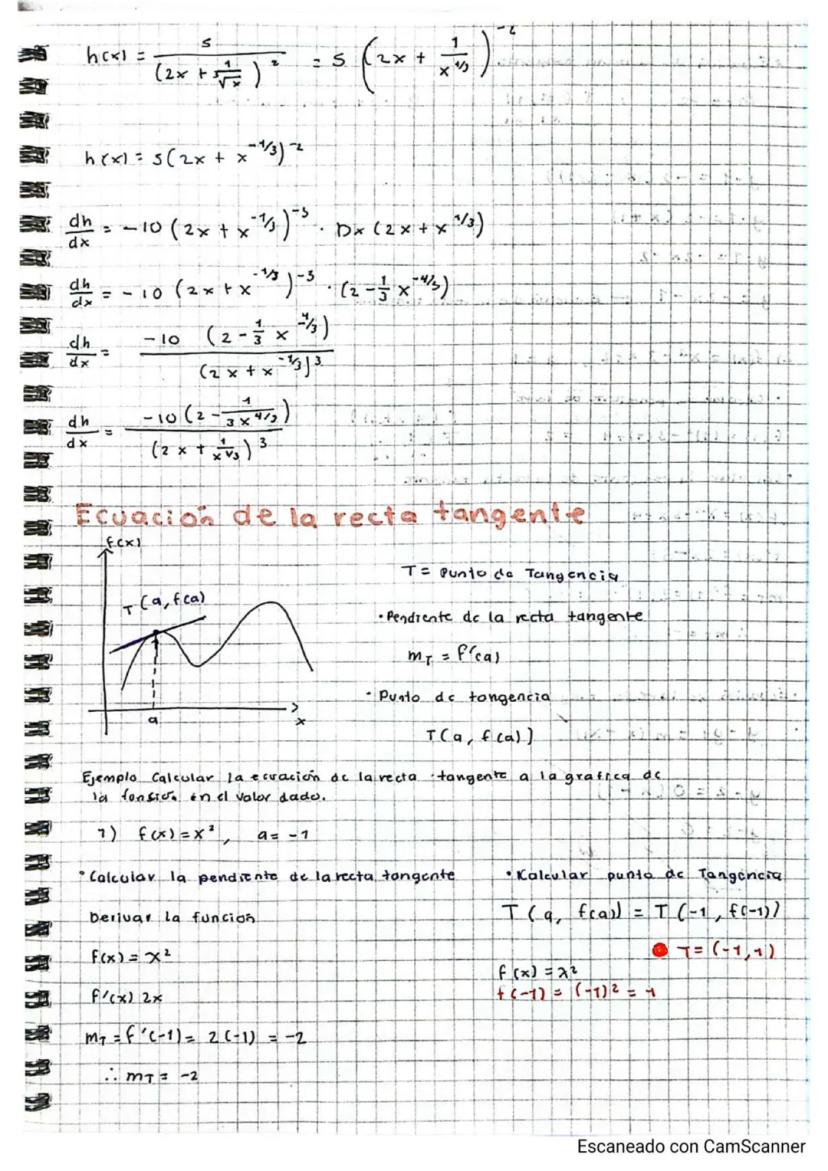 h(x) = 5 / (2x + 1/∛x)² = 5 (2x + 1/x^1/3)^-2
h(x) = 5(2x + x^-1/3)^-2
dh/dx = -10 (2x + x^-1/3)^-3 · Dx (2x + x^1/3)
dh/dx = -10 (2x + x^-1/3)^-3 · (2 - 1/3 x^-4/3)
dh/dx = -10 (2 - 1/3 x^-4/3) / (2x + x^-1/3)^3
dh/dx = -10 (2 - 1/3x^4/3) / (2x + 1/x^1/3)^3
Ecuación de la recta tangente
f(x)
T (a, f(a)
a
x
T = Punto de Tangencia
• Pendiente de la recta tangente
m_T = f'(a)
• Punto de tangencia
T(a, f(a))
Ejemplo Calcular la ecuación de la recta tangente a la grafica de
la fonsion en el valor dado.
1) f(x) = x², a = -1
• Calcular la pendiente de la recta tangente
Derivar la funcion
f(x) = x²
f'(x) 2x
m_T = f'(-1) = 2(-1) = -2
∴ m_T = -2
• Kalcular punto de Tangencia
T (a, f(a)) = T(-1, f(-1))
T = (-1, 1)
f(x) = x²
f(-1) = (-1)² = 1
Escaneado con CamScanner